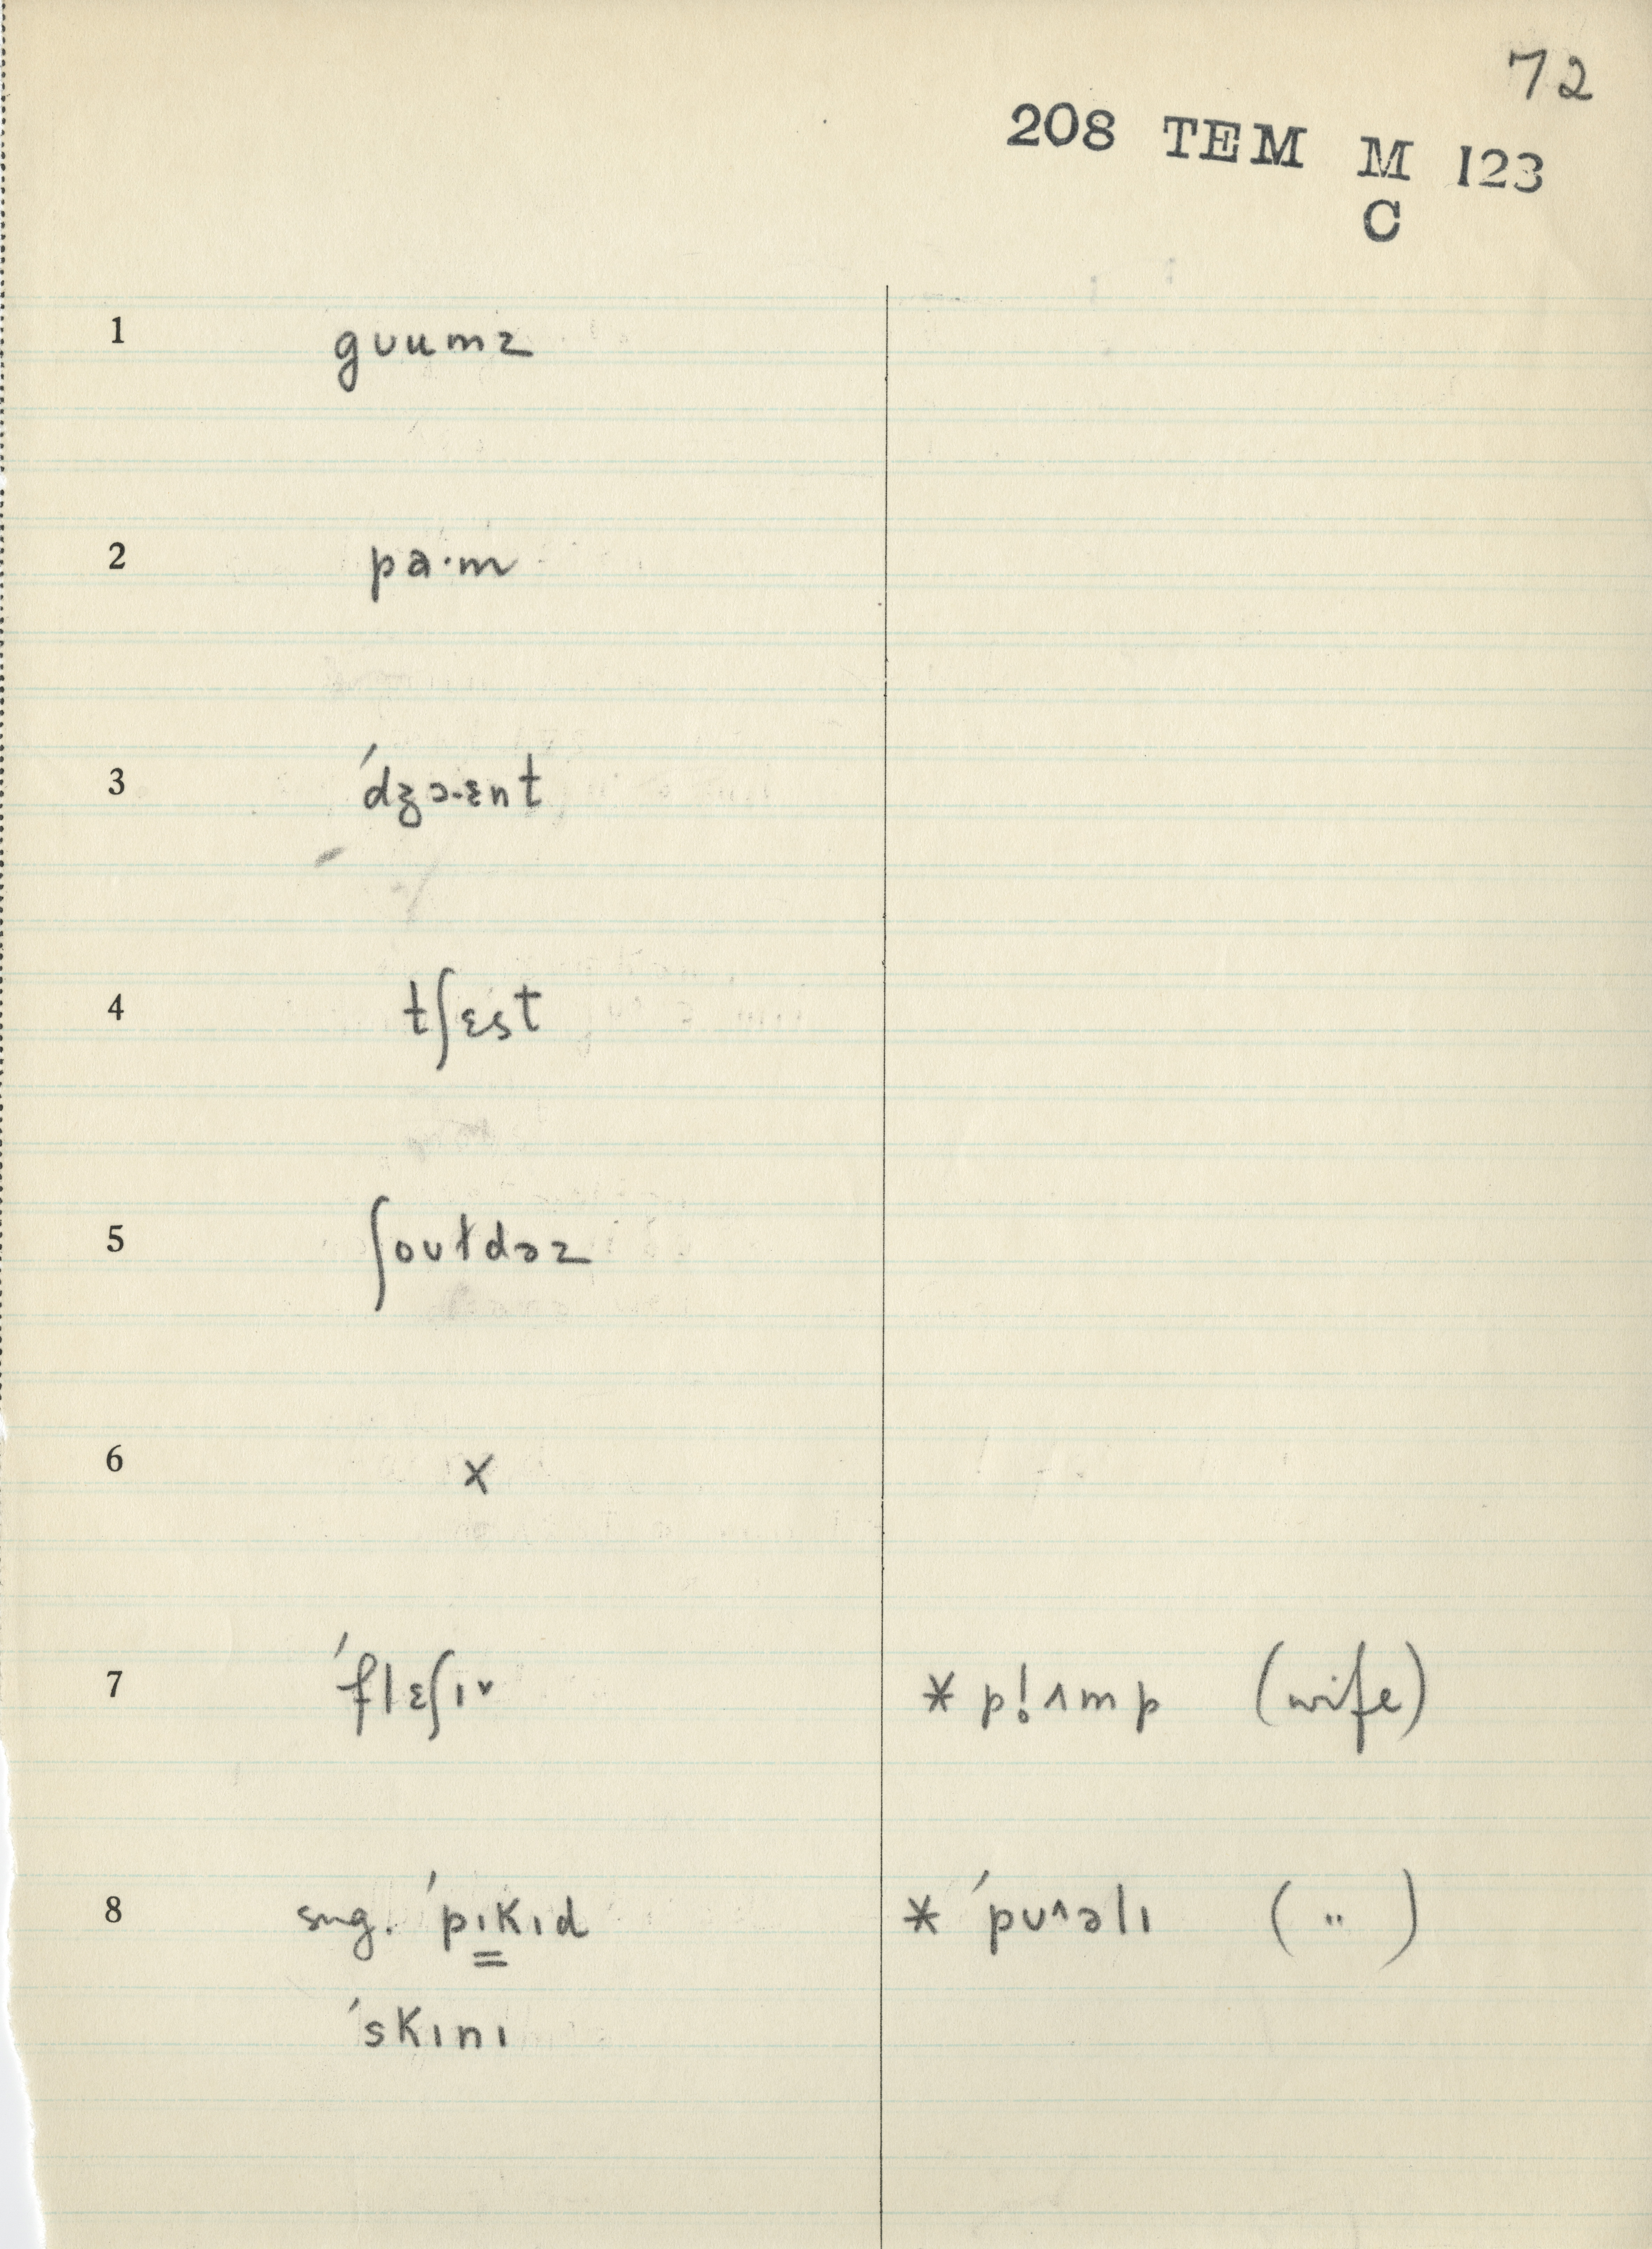 72
208 TEM M 123
C
1 gʊumz
2 pa·m
3 ˈdʒɔ.ɛnt
4 tʃɛst
5 ʃoʊɫdəz
6 x
7 ˈflɛʃɪˇ * pl̥ʌmp (wife)
8 sug. ˈpɪkɪd * ˈpʊ^əlɪ ( " )
ˈskɪnɪ